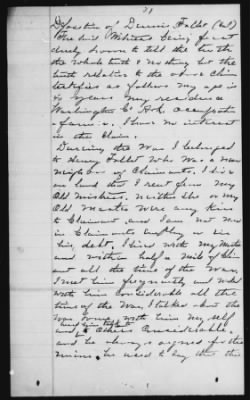 21
Deposition of Dennis Fallet (col)
The said Witness being first
duly sworn to tell the truth
the whole truth & nothing but the
truth relative to the above Claim
testifies as follows My age is
years My residence
Washington Co. Ark Occupation
a farmer. I have no interest
in the Claim.
During the War I belonged
to Henry Fallet Who Was a near
neighbor of Claimants. I live
on land that I rent from My
Old Mistress. Neither She or my
Old Master Were any Kin
to Claimant and I am not now
in Claimants employ or in
his debt, I lived with My Master
and within half a Mile of Claimant
all the time of the War,
I met him frequently and was
with him Considerable all the
time of the War, I talked about the
War Some, With him My self
and him talked
to Others Considerable,
and he always argued for the
Union, he used to say that the